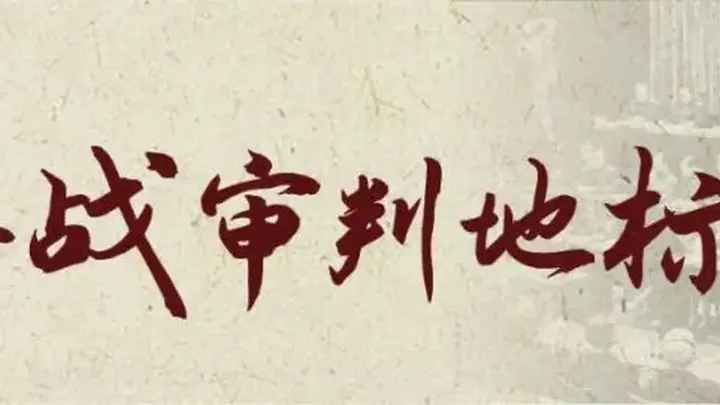 战审判地标